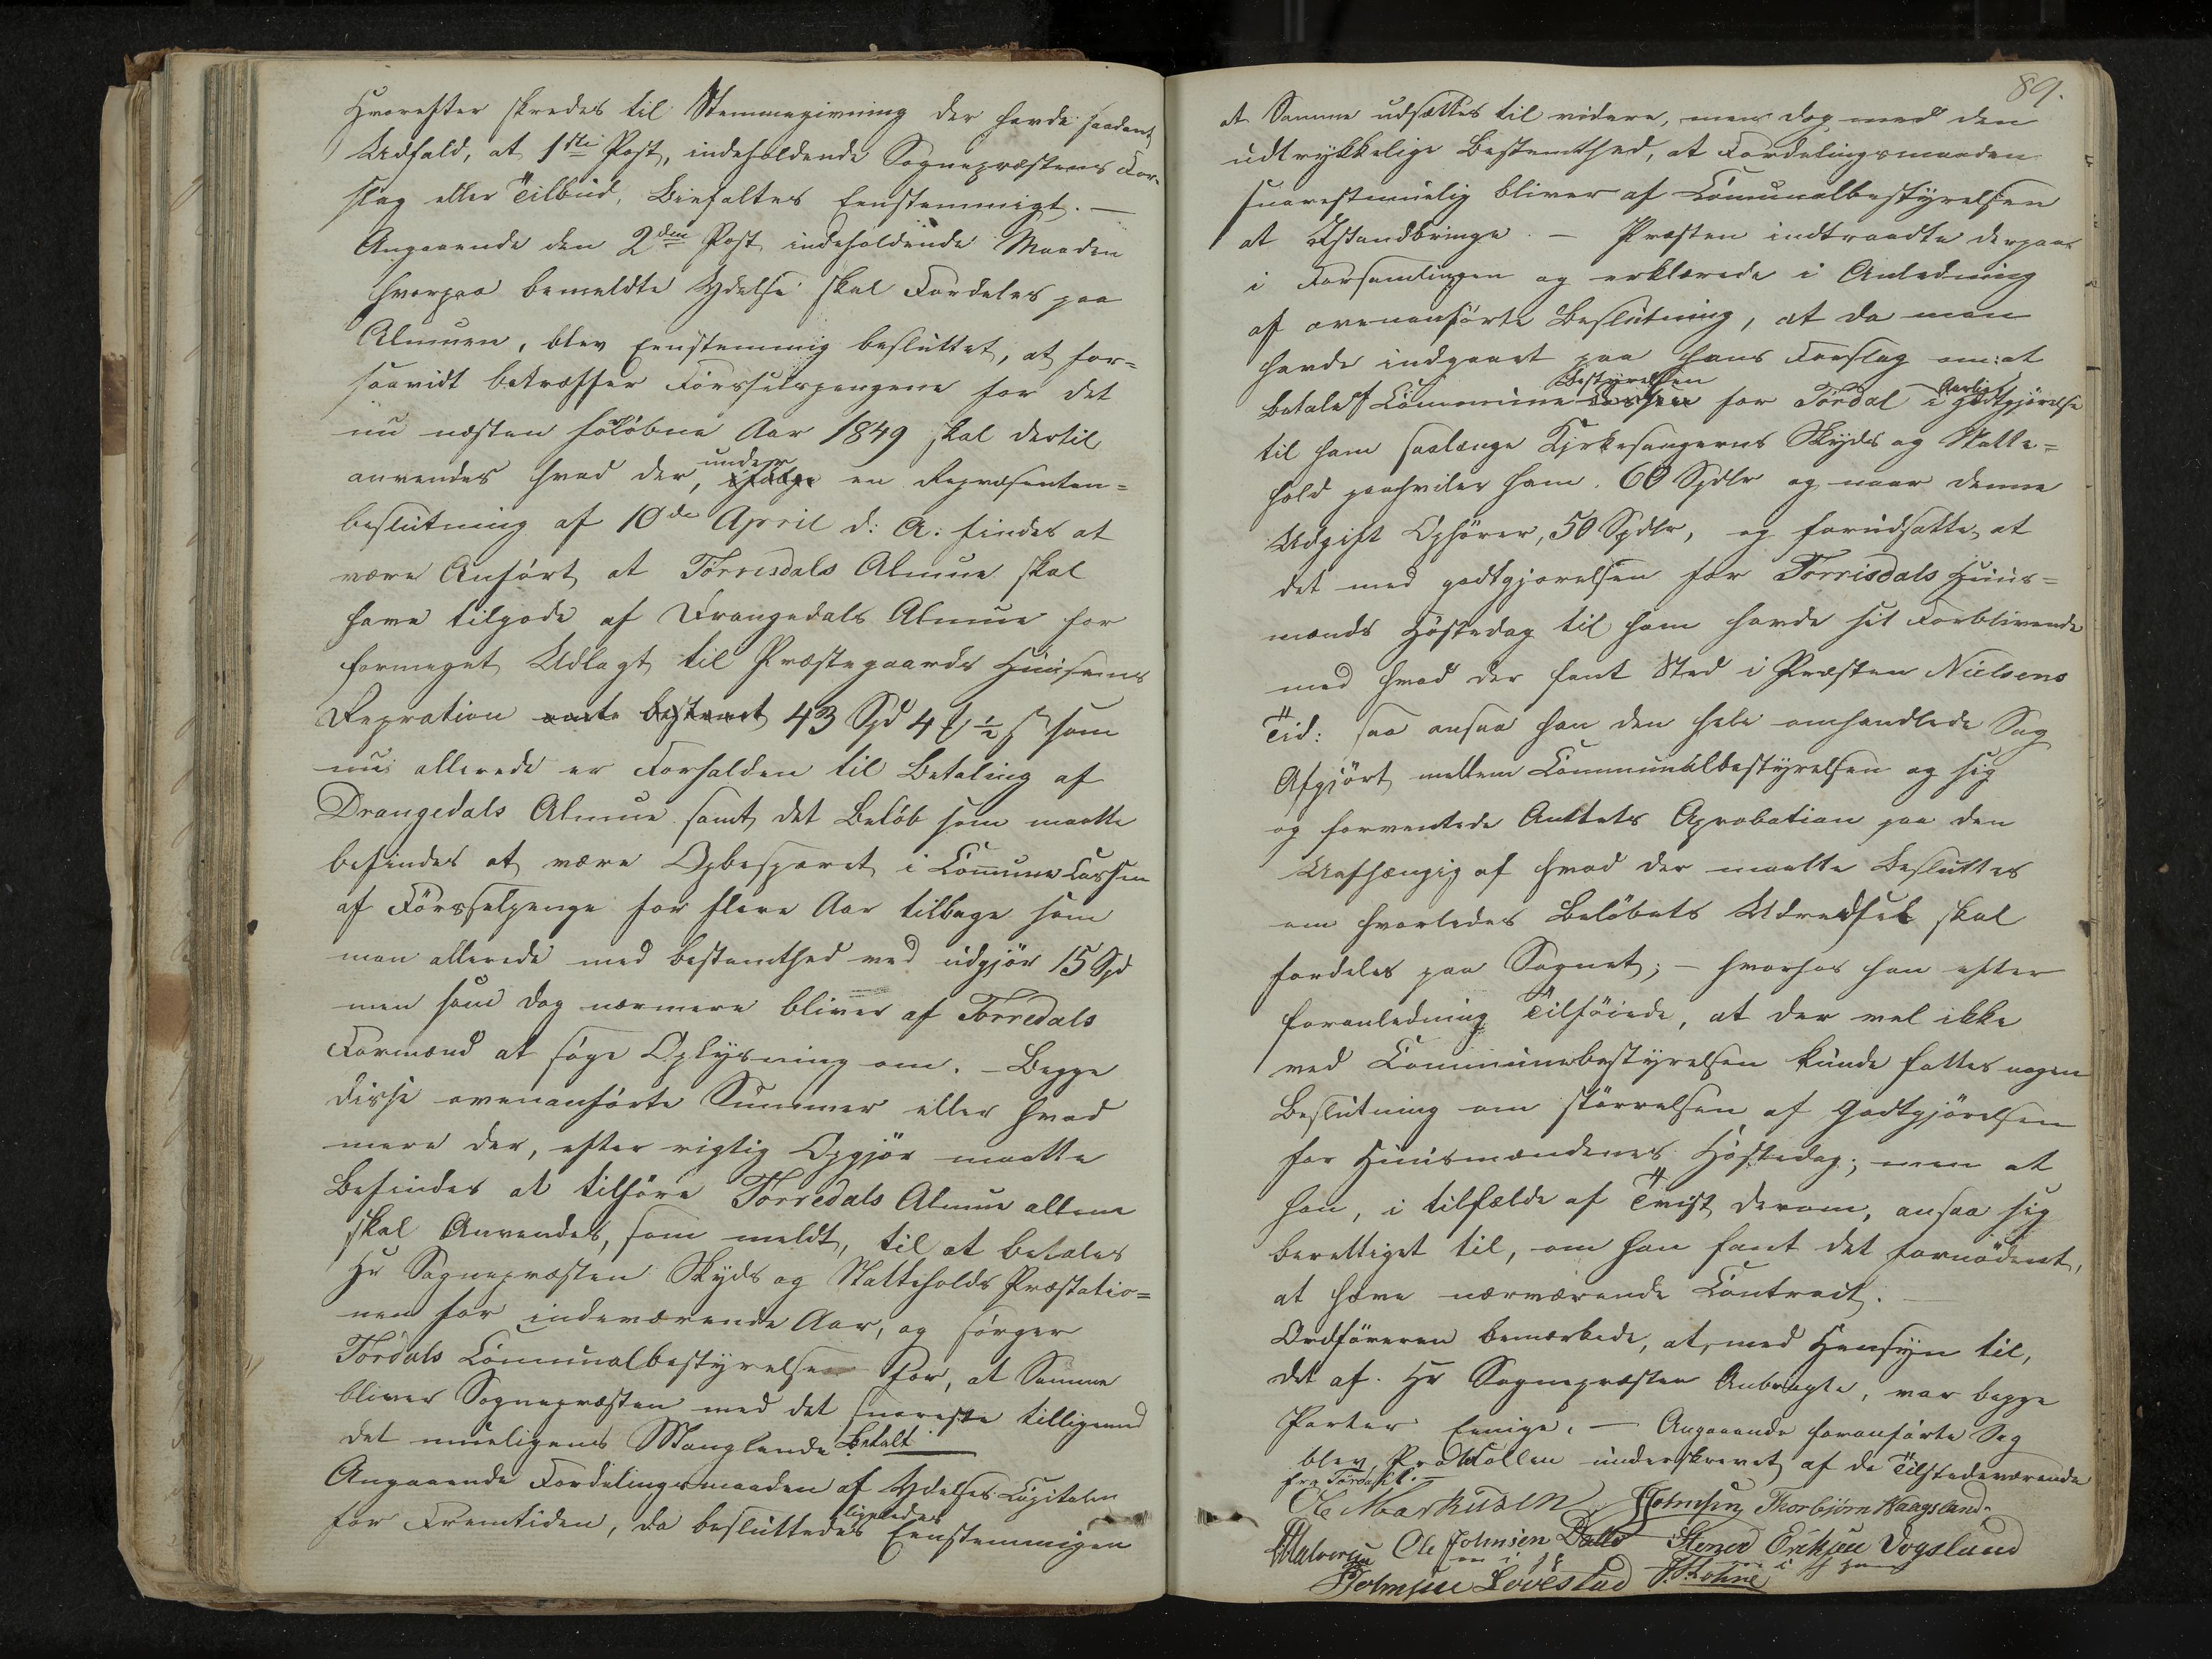 Hvorefter skredes til Stemmegivning der havde saadant
Udfald, at 1ste Post, indeholdende Sognepræstens For-
slag eller Tilbud, Biefaltes Eenstemmigt. —
Angaaende den 2den Post indeholdende Maaden
hvorpaa bemeldte Ydelse skal Fordeles paa
Almuen, blev Eenstemmig besluttet, at for=
saavidt betræffer Förselspengene for det
nu næsten forløbne Aar 1849 skal dertil
anvendes hvad der, under en Repræsentan=
beslutning af 10de April d: A: findes at
være Anført at Tørresdals Almue skal
have tilgode af Drangedals Almue for
formeget Udlagt til Præstegaards Huusenes
Repration 43 Spd 4 ½ som
nu allerede er Forfalden til Betaling af
Drangedals Almue samt det Beløb som maatte
befindes at være Opbesparet i Commune Cassen
af Förselpenge for flere Aar tilbage som
man allerede med bestemthed ved udgjör 15 Spd
men som dog nærmere bliver af Torredals
Formænd at søge Oplysning om. — Begge
disse ovenanførte Summer eller hvad
mere der, efter rigtig Opgjör maatte
Befindes at tilhöre Torredals Almue allene
skal Anvendes, som meldt, til at betales
Hr Sognepræsten Skyds og Natteholds Præstatio=
nen for indeværende Aar, og sörger
Tördals Communalbestyrelse for, at Samme
bliver Sognepræsten med det snareste tilligemed
det mueligens Manglende Betalt.
Angaaende Fordelingsmaaden af Ydelses Capitalen
ligeledes
for Fremtiden, da besluttedes Eenstemmigen
89.
at Samme udsættes til videre, men dog med den
udtrykkelige Bestemthed, at Fordelingsmaaden
snarestmuelig bliver af Communalbestyrelsen
at Istandbringe. — Præsten indtraadte derpaa
i Forsamlingen og erklærede i Anledning
af ovenanförte Beslutning, at da man
havde indgaaet paa hans Forslag om: at
Bestyrelsen Aarlig
betale af Commune Cassen for Tördal i Godtgjörelse
til ham saalænge Kirkesangerens Skyds og Natte=
hold paahviler ham. 60 Spdlr og naar denne
Udgift Ophörer, 50 Spdlr, og forudsatte, at
det med godtgjørelsen for Torrisdals Huus=
mænds Höstedag til ham havde sit Forblivende
med hvad der fant Sted i Præsten Nielsens
Tid: saa ansaa han den hele omhandlede Sag
Afgjört mellem Communalbestyrelsen og sig
og forventede Amtets Aprobation paa den
Uafhængig af hvad der maatte Besluttes
om hvorledes Beløbets Udredsel skal
fordeles paa Sognet; — hvorhos han efter
foranledning Tilföiede, at der vel ikke
ved Communebestyrelsen kunde fattes nogen
Beslutning om størrelsen af Godtgjörelsen
for Huusmændenes Höstedag; men at
han, i tilfælde af Tvist derom, ansaa sig
berettiget til, om han fant det fornödent,
at hæve nærværende Contract. —
Ordföreren bemærkede, at, med Hensyn til,
det af Hr Sognepræsten Anbragte, var begge
Parter Enige. — Angaaende foranførte Sag
blev Protokollen underskrevet af de Tilstedeværende
fra Tördal.
Ole Markusen Johnsen Thorbjörn Waagsland
Halvorsen Ole Johnsen Dalle Stener Eriksen Vogslund
Johnsen Lovestad